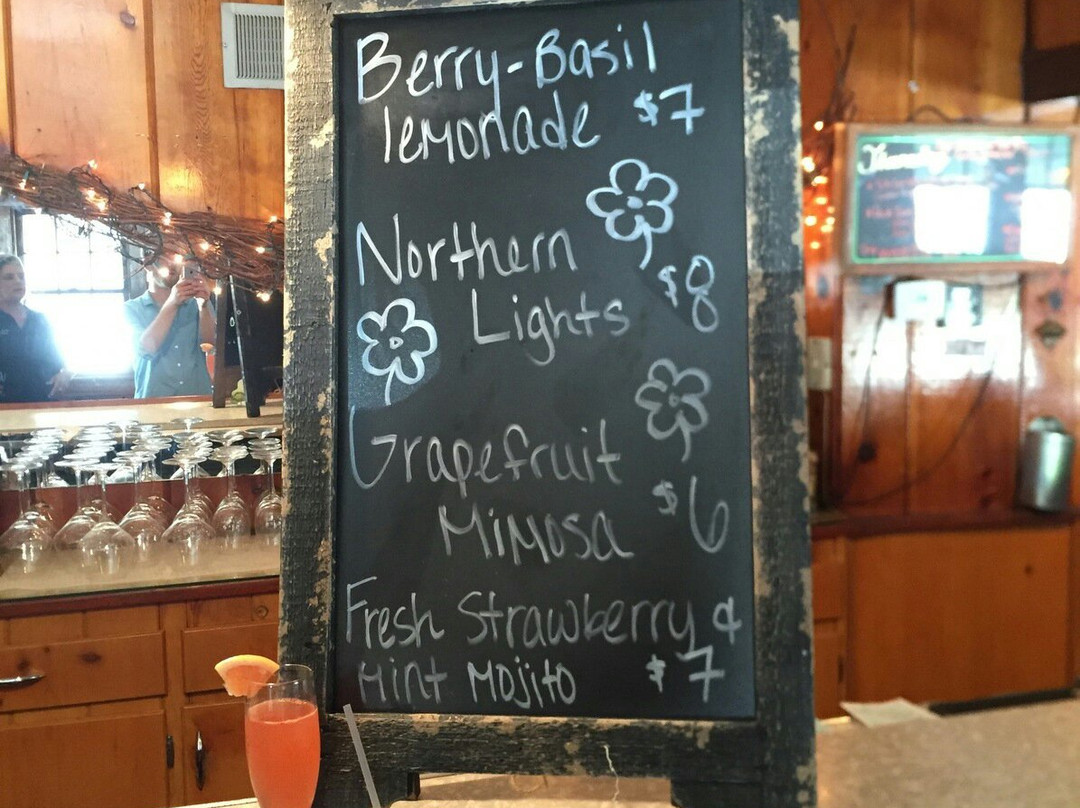 Berry-Basil
lemonade $7
Northern
Lights $8
Grapefruit
Mimosa $6
Fresh Strawberry &
Mint Mojito $7